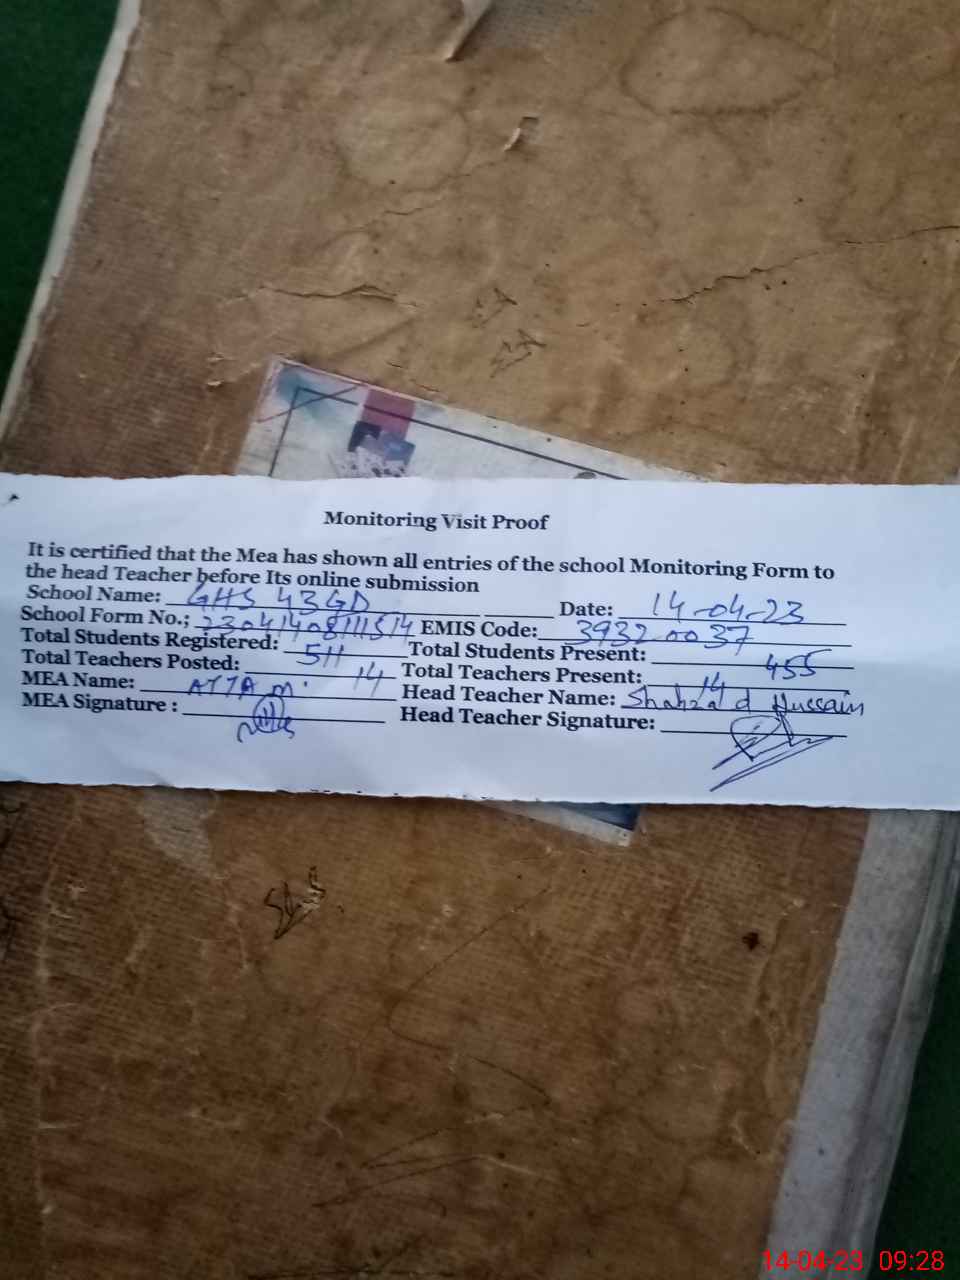 Monitoring Visit Proof
It is certified that the Mea has shown all entries of the school Monitoring Form to
the head Teacher before Its online submission
School Name: GHS 43GD Date: 14-04-23
School Form No.; 230414081111514 EMIS Code: 39320037
Total Students Registered: 511 Total Students Present: 455
Total Teachers Posted: 14 Total Teachers Present: 14
MEA Name: ATTA M. Head Teacher Name: Shahzad Hussain
MEA Signature : Head Teacher Signature:
14-04-23 09:28